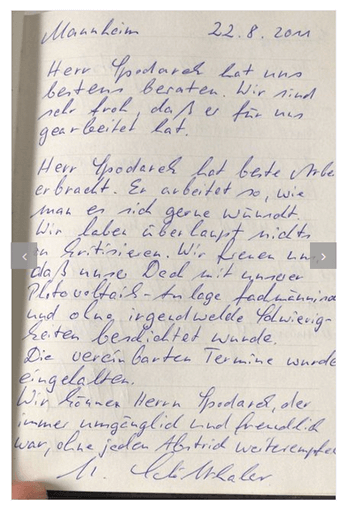 Mannheim 22.8.2011
Herr Spodarek hat uns
bestens beraten. Wir sind
sehr froh, daß er für uns
gearbeitet hat.
Herr Spodarek hat beste Arbe
erbracht. Er arbeitet so, wie
man es sich gerne wünscht.
Wir haben überhaupt nichts
zu kritisieren. Wir freuen uns,
daß unser Dach mit unserer
Photovoltaik-Anlage fachmännisc
und ohne irgendwelche Schwierig-
keiten beschichtet wurde.
Die vereinbarten Termine wurde
eingehalten.
Wir können Herrn Spodarek, der
immer umgänglich und freundlich
war, ohne jeden Abstrich weiterempfeh